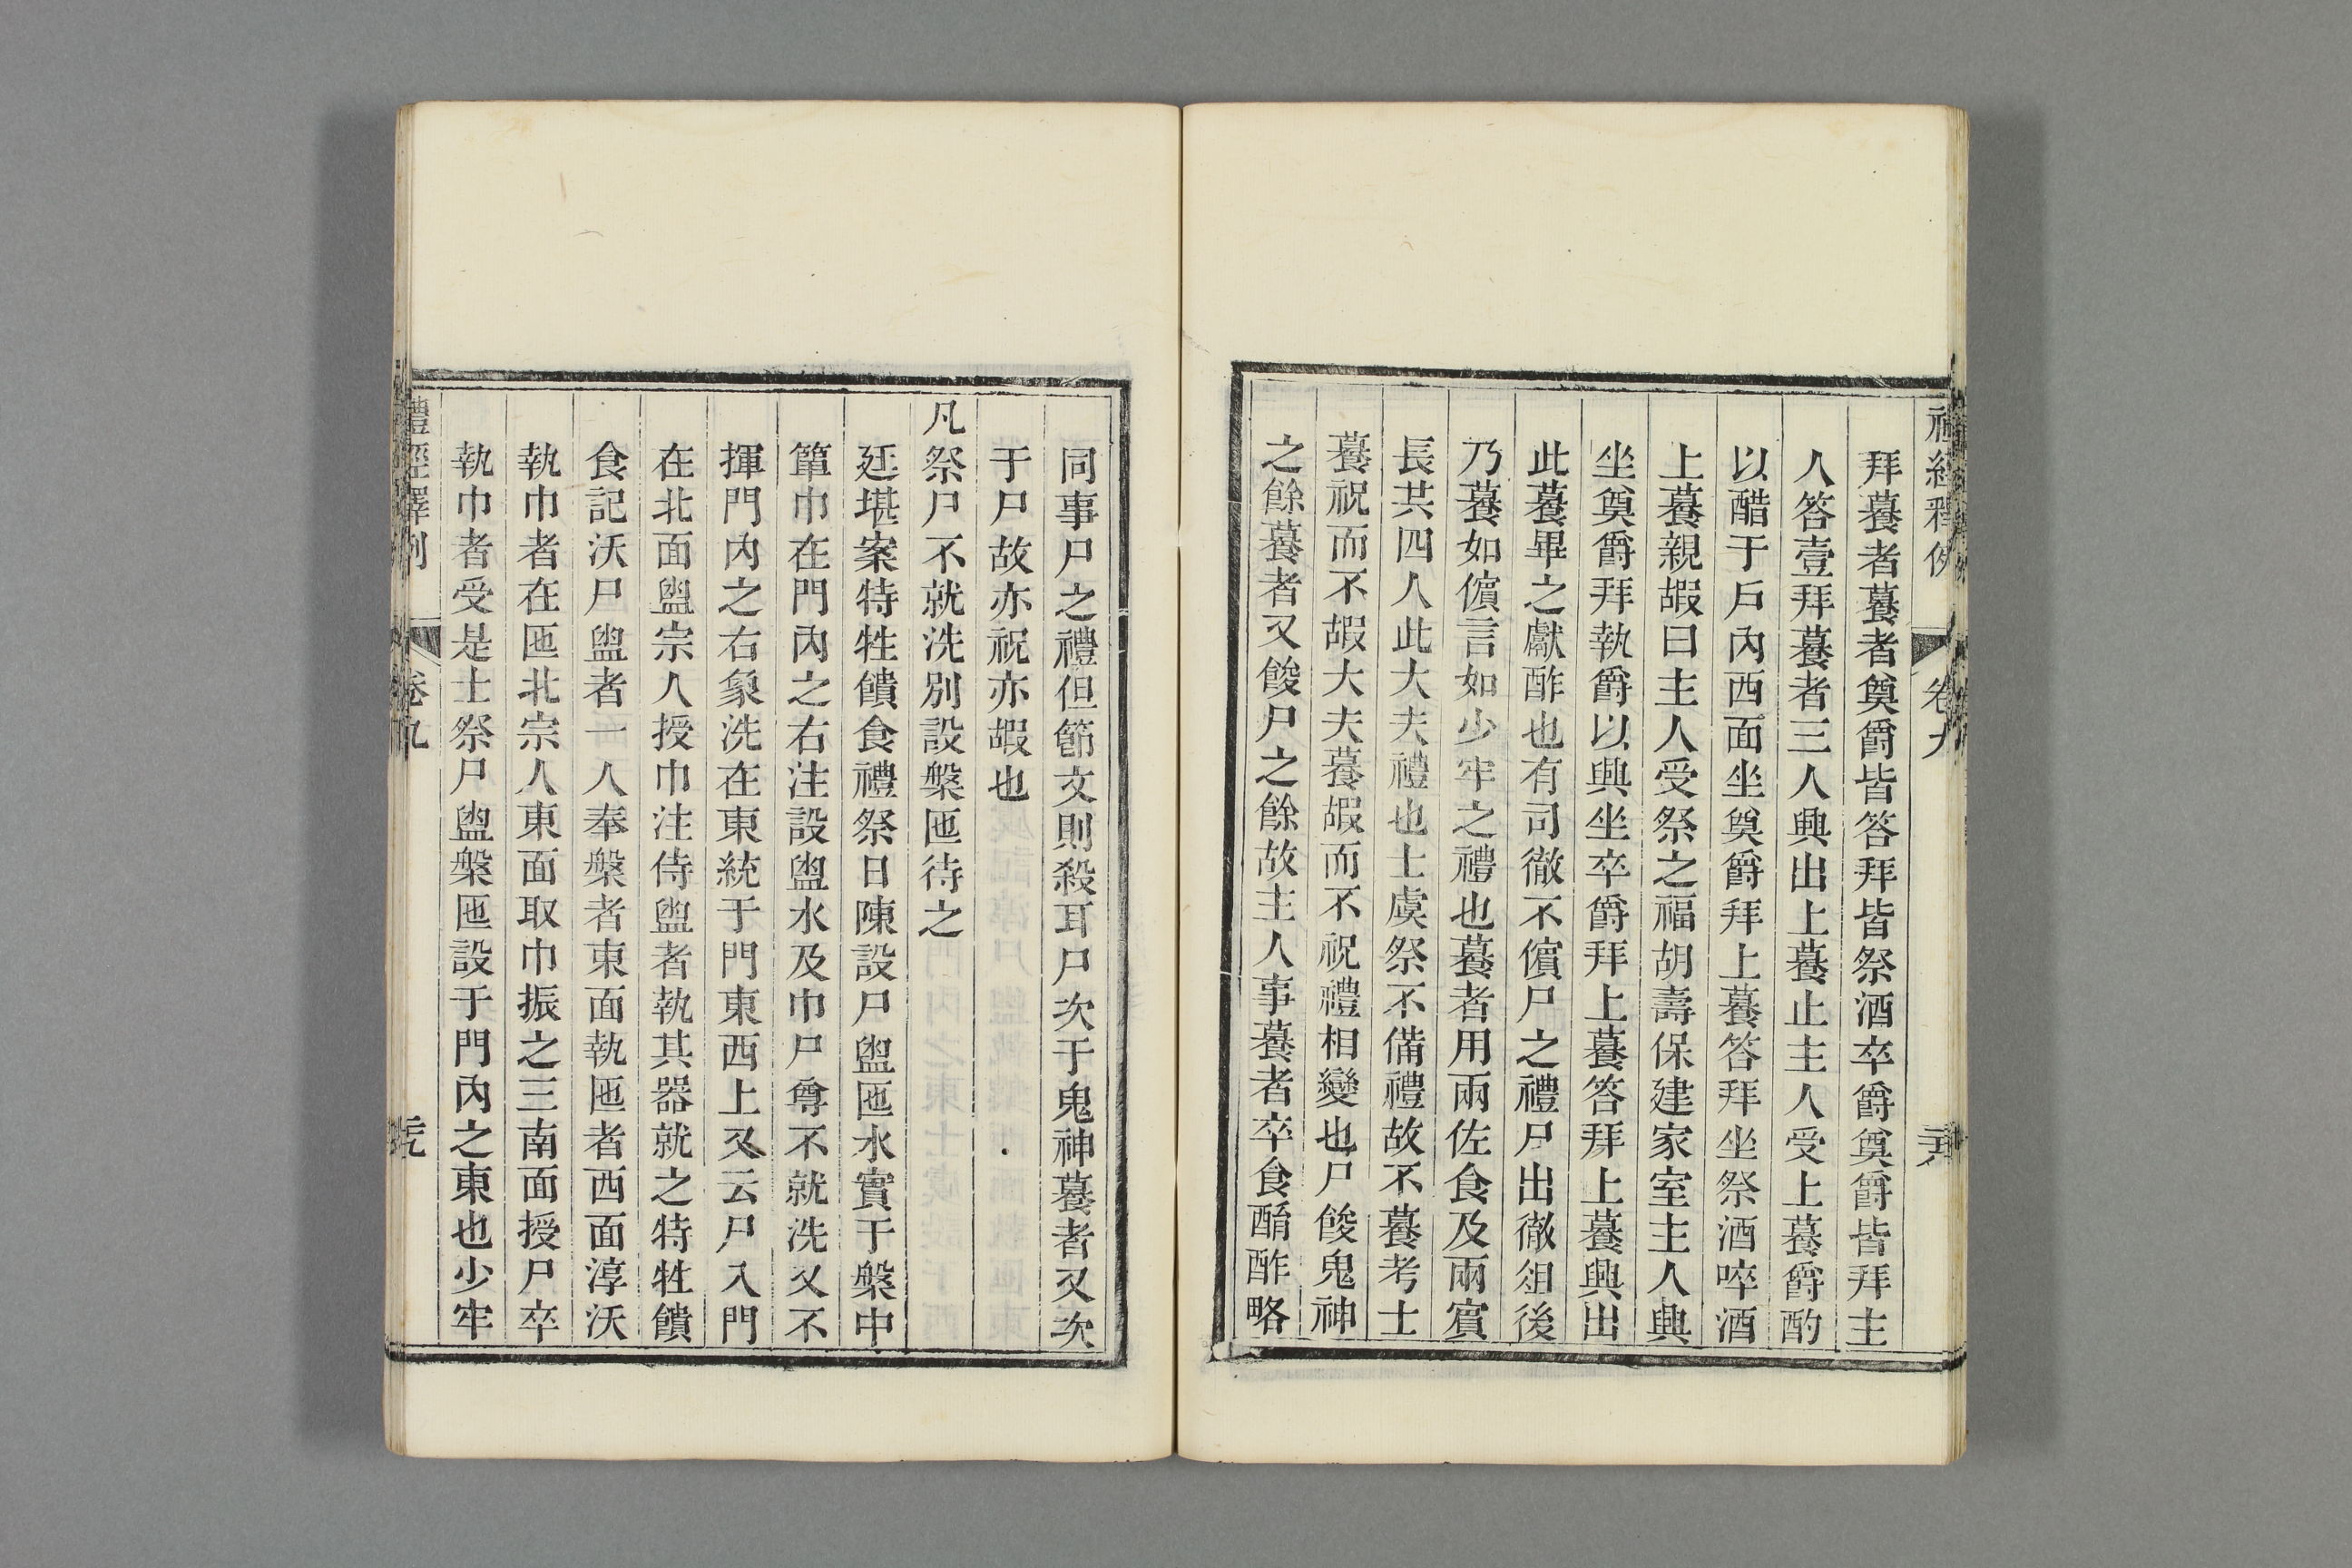 禮經釋例 卷九
拜養者養者奠爵皆答拜皆祭酒卒爵奠爵皆拜主
人答壹拜養者三人興出上養止主人受上養爵酌
以醋于戶內西面坐奠爵拜上養答拜坐祭酒啐酒
上養親嘏曰主人受祭之福胡壽保建家室主人興
坐奠爵拜執爵以興坐卒爵拜上養答拜上養興出
此養畢之獻酢也有司徹不儐尸之禮尸出徹俎後
乃養如儐言如少牢之禮也養者用兩佐食及兩賓
長共四人此大夫禮也士虞祭不備禮故不養考士
養祝而不嘏大夫養嘏而不祝禮相變也尸餕鬼神
之餘養者又餕尸之餘故主人事養者卒食酳酢略
同事尸之禮但節文則殺耳尸次于鬼神養者又次
于尸故亦祝亦嘏也
凡祭尸不就洗別設槃匜待之
廷堪案特牲饋食禮祭日陳設尸盥匜水實于槃中
簞巾在門內之右注設盥水及巾尸尊不就洗又不
揮門內之右象洗在東統于門東西上又云尸入門
在北面盥宗人授巾注侍盥者執其器就之特牲饋
食記沃尸盥者一人奉槃者東面執匜者西面淳沃
執巾者在匜北宗人東面取巾振之三南面授尸卒
執巾者受是士祭尸盥槃匜設于門內之東也少牢
禮經釋例 卷九